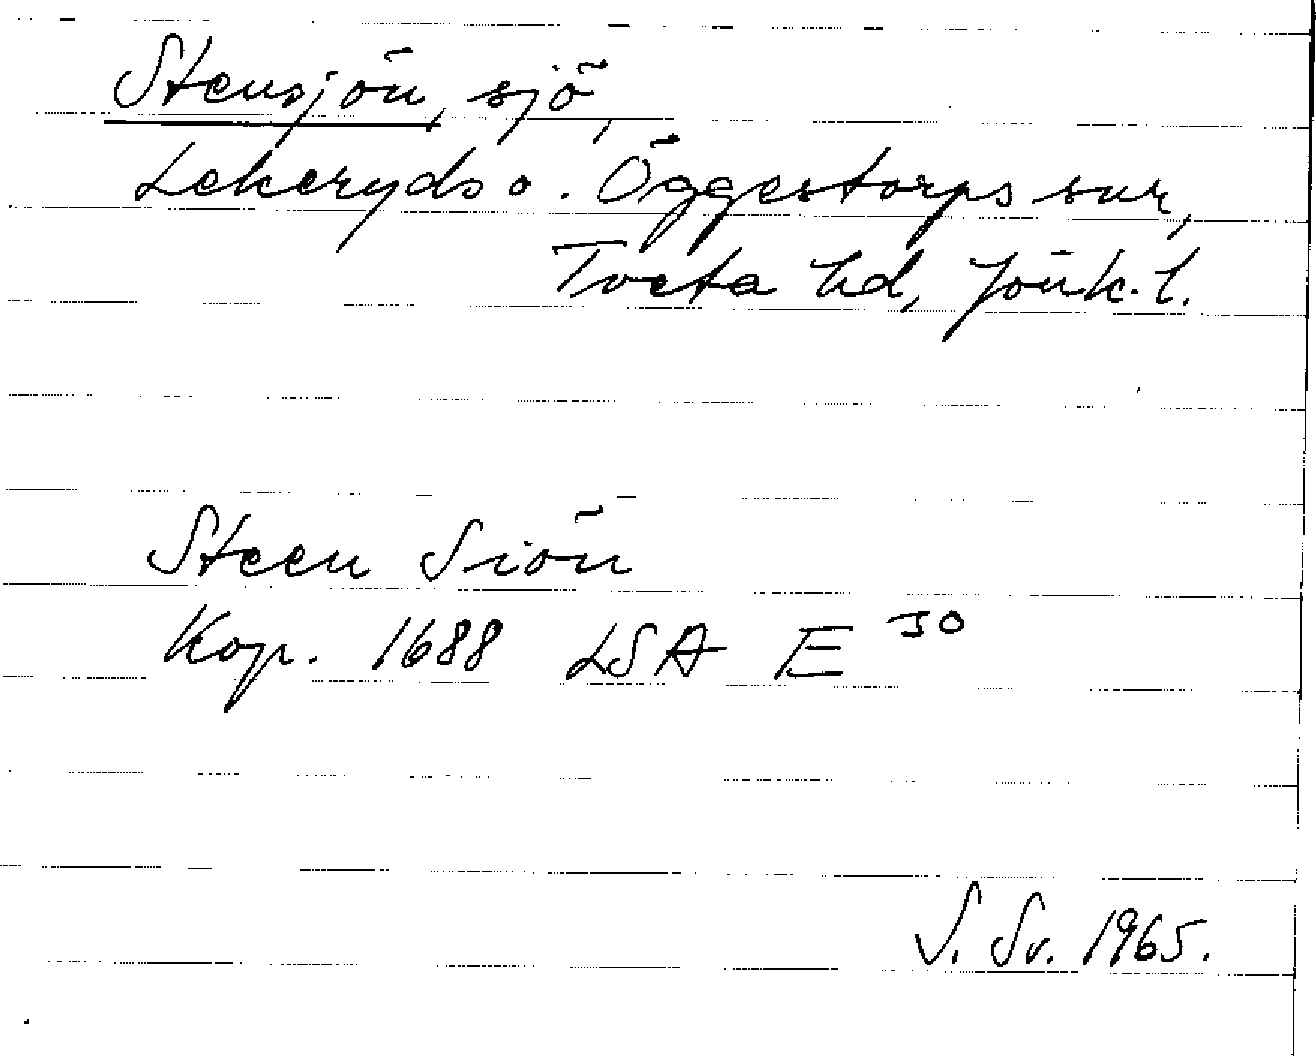 Stensjön, sjö,
Lekeryds o. Öggestorps snr,
Tveta hd, Jönk. l.
Steen Siön
Kop. 1688 LSA E 30
S. Sv. 1965.